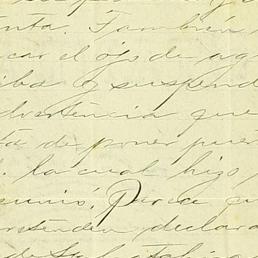 nta. También
car el ojo de ag
iba y suspend
dvertencia que
ta de poner puer
. la cual hizo
Perca q
retenden declara